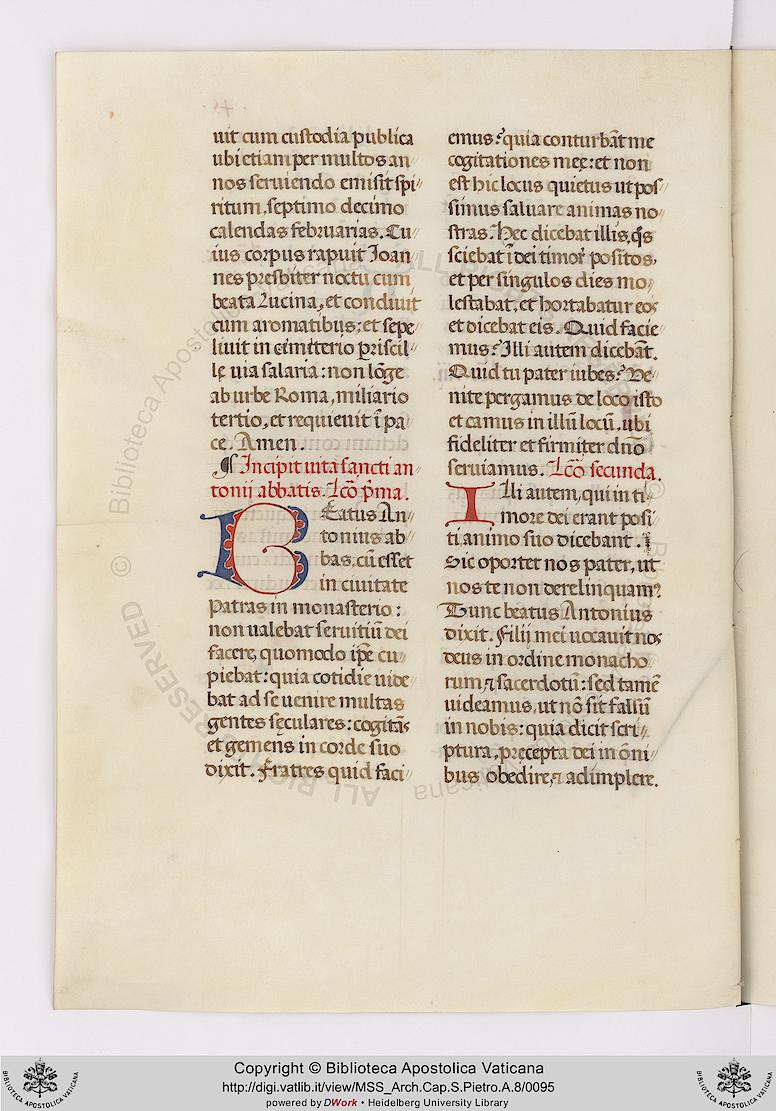 uit cum custodia publica
ubi etiam per multos an〃
nos seruiendo emisit spi〃
ritum, septimo decimo
calendas februarias. Cu〃
ius corpus rapuit Ioan〃
nes presbiter noctu cum
beata Lucina, et condiuit
cum aromatibus: et sepe〃
liuit in cimiterio priscil〃
lę uia salaria: non lōge
ab urbe Roma, miliario
tertio, et requieuit ī pa〃
ce. Amen.
¶ Incipit uita sancti an〃
tonij abbatis. Lcō p̄ma.
BEatus An〃
tonius ab〃
bas, cū esset
in ciuitate
Patras in monasterio:
non ualebat seruitiū dei
facere, quomodo ip̄e cu〃
piebat: quia cotidie uide〃
bat ad se uenire multas
gentes sęculares: cogitās
et gemens in corde suo
dixit. Fratres quid faci〃
emus? quia conturbāt me
cogitationes meę: et non
est hic locus quietus ut pos〃
simus saluare animas no〃
stras. Hec dicebat illis, q̄s
sciebat ī dei timor̄ positos,
et per singulos dies mo〃
lestabat, et hortabatur eos
et dicebat eis. Quid facie〃
mus? Illi autem dicebāt.
Quid tu pater iubes? Ve〃
nite pergamus de loco isto
et eamus in illū locū, ubi
fideliter et firmiter dn̄o
seruiamus. Lcō secunda.
Illi autem, qui in ti〃
more dei erant posi〃
ti animo suo dicebant.
Sic oportet nos pater, ut
nos te non derelinquam?
Tunc beatus Antonius
dixit. Filij mei uocauit nos
deus in ordine monacho〃
rum ⁊ sacerdotū: sed tamē
uideamus, ut nō sit falsū
in nobis: quia dicit scri〃
ptura, pręcepta dei in ōni〃
bus obedire, ⁊ adimplere.
© Biblioteca Apostolica Vaticana
ALL RIGHTS RESERVED
Copyright © Biblioteca Apostolica Vaticana
http://digi.vatlib.it/view/MSS_Arch.Cap.S.Pietro.A.8/0095
powered by DWork • Heidelberg University Library
BIBLIOTECA APOSTOLICA VATICANA
BIBLIOTECA APOSTOLICA VATICANA